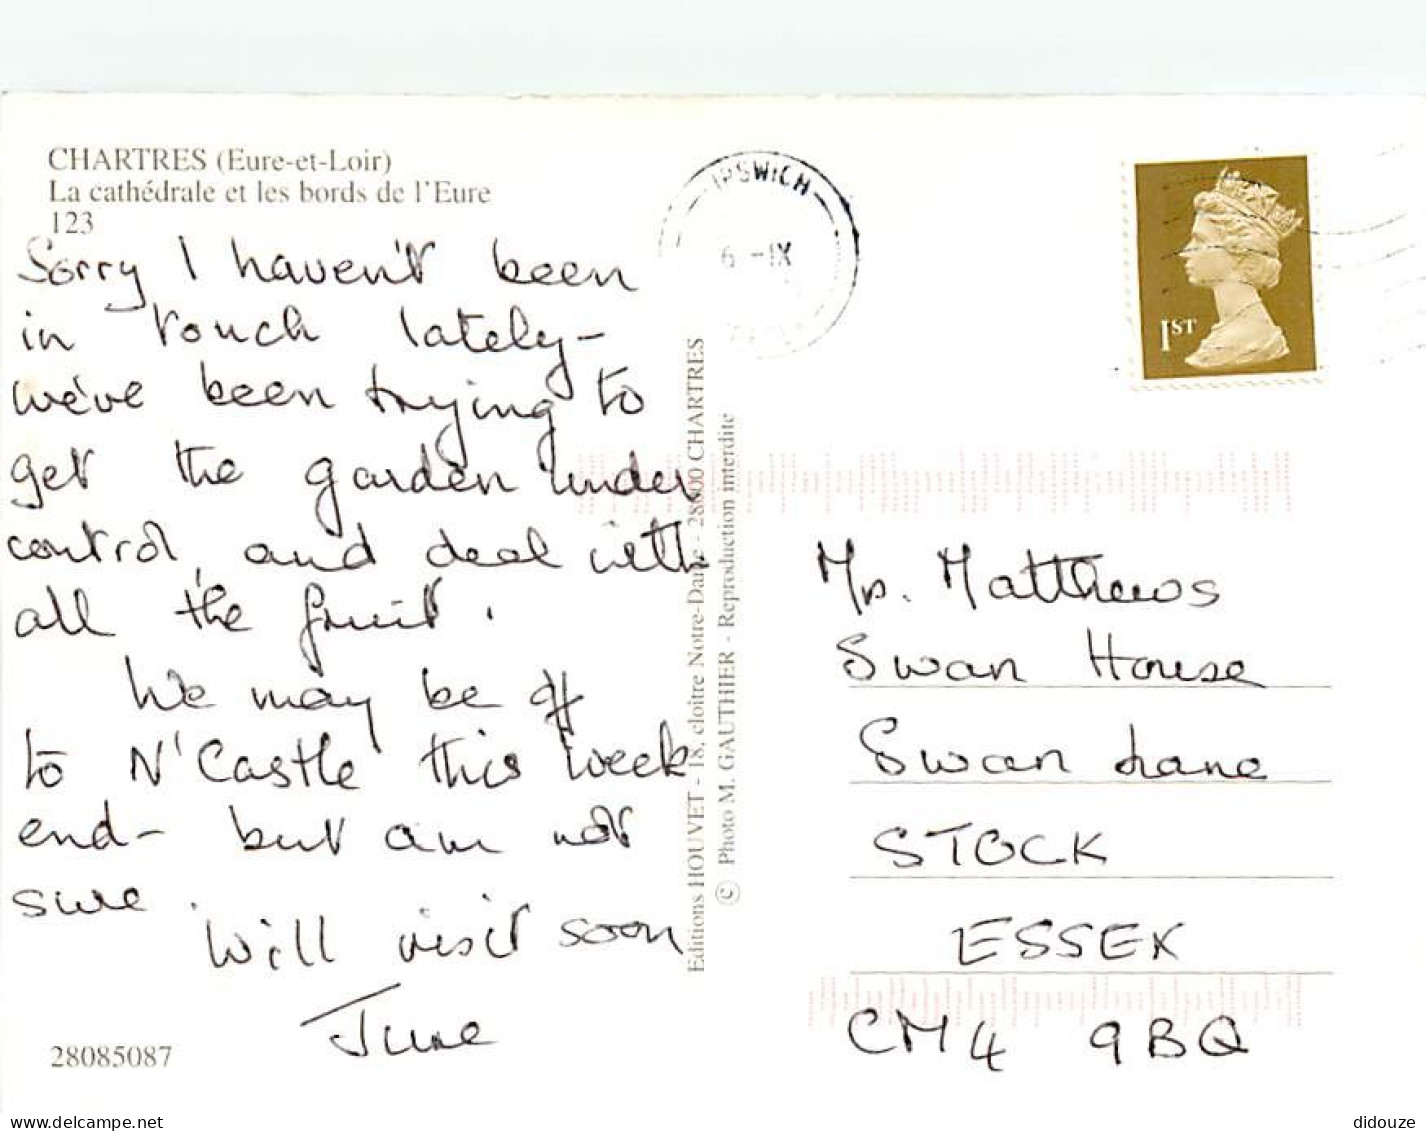 CHARTRES (Eure-et-Loir)
La cathédrale et les bords de l'Eure
123
Sorry I haven't been
in touch lately -
we've been trying to
get the garden under
control, and deal with
all the fruit.
We may be off
to N'Castle this week
end - but am not
sure.
Will visit soon
June
28085087
Editions HOUVET - 18, cloître Notre-Dame - 28000 CHARTRES
© Photo M. GAUTHIER - Reproduction interdite
IPSWICH
6 -IX
1ST
Matthews
Swan House
Swan Lane
STOCK
ESSEX
CM4 9BQ
delcampe.net
didouze